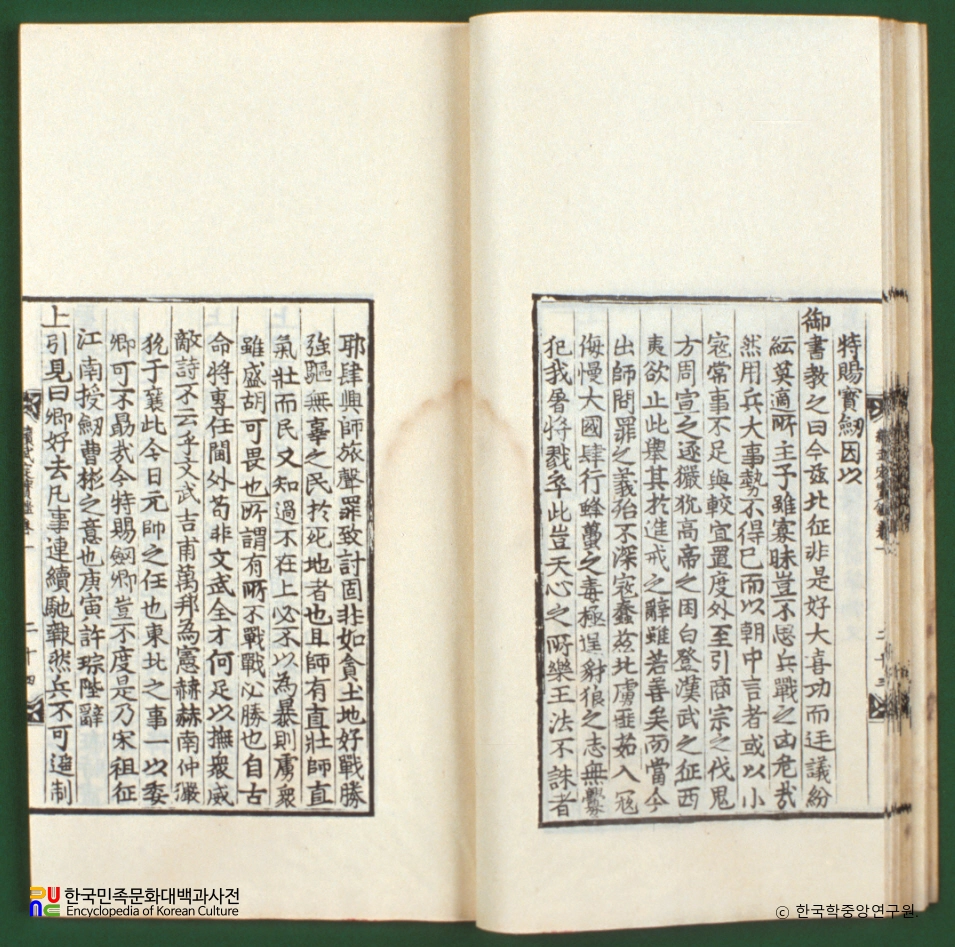 特賜寳劒因以
御書教之曰今玆北征非是好大喜功而迋議紛
紜莫適所主予雖寡昧豈不思兵戰之凶危㦲
然用兵大事勢不得已而以朝中言者或以小
宼常事不足與較宜置度外至引商宗之伐鬼
方周宣之逐玁狁高帝之困白登漢武之征西
夷欲止此擧其於進戒之辭雖若善矣而當今
出師問罪之義殆不深宼蠢玆北虜匪茹入宼
侮慢大國肆行蜂蠆之毒極逞豺狼之志無釁
犯我屠將戮卒此豈天心之所樂王法不誅者
耶肆興師旅聲罪致討固非如貪土地好戰勝
強驅無辜之民於死地者也且師有直壯師直
氣壯而民又知過不在上必不以為暴則虜衆
雖盛胡可畏也所謂有所不戰戰必勝也自古
命將專任閫外苟非文武全才何足以撫衆威
敵詩不云乎文武吉甫萬邦為憲赫赫南仲玁
狁于襄此今日元帥之任也東北之事一以委
卿可不勗㦲今特賜劒卿豈不度是乃宋祖征
江南授劒曹彬之意也庚寅許琮陛辭
上引見曰卿好去凡事連續馳報然兵不可遥制
二十四
한국민족문화대백과사전
Encyclopedia of Korean Culture
© 한국학중앙연구원.